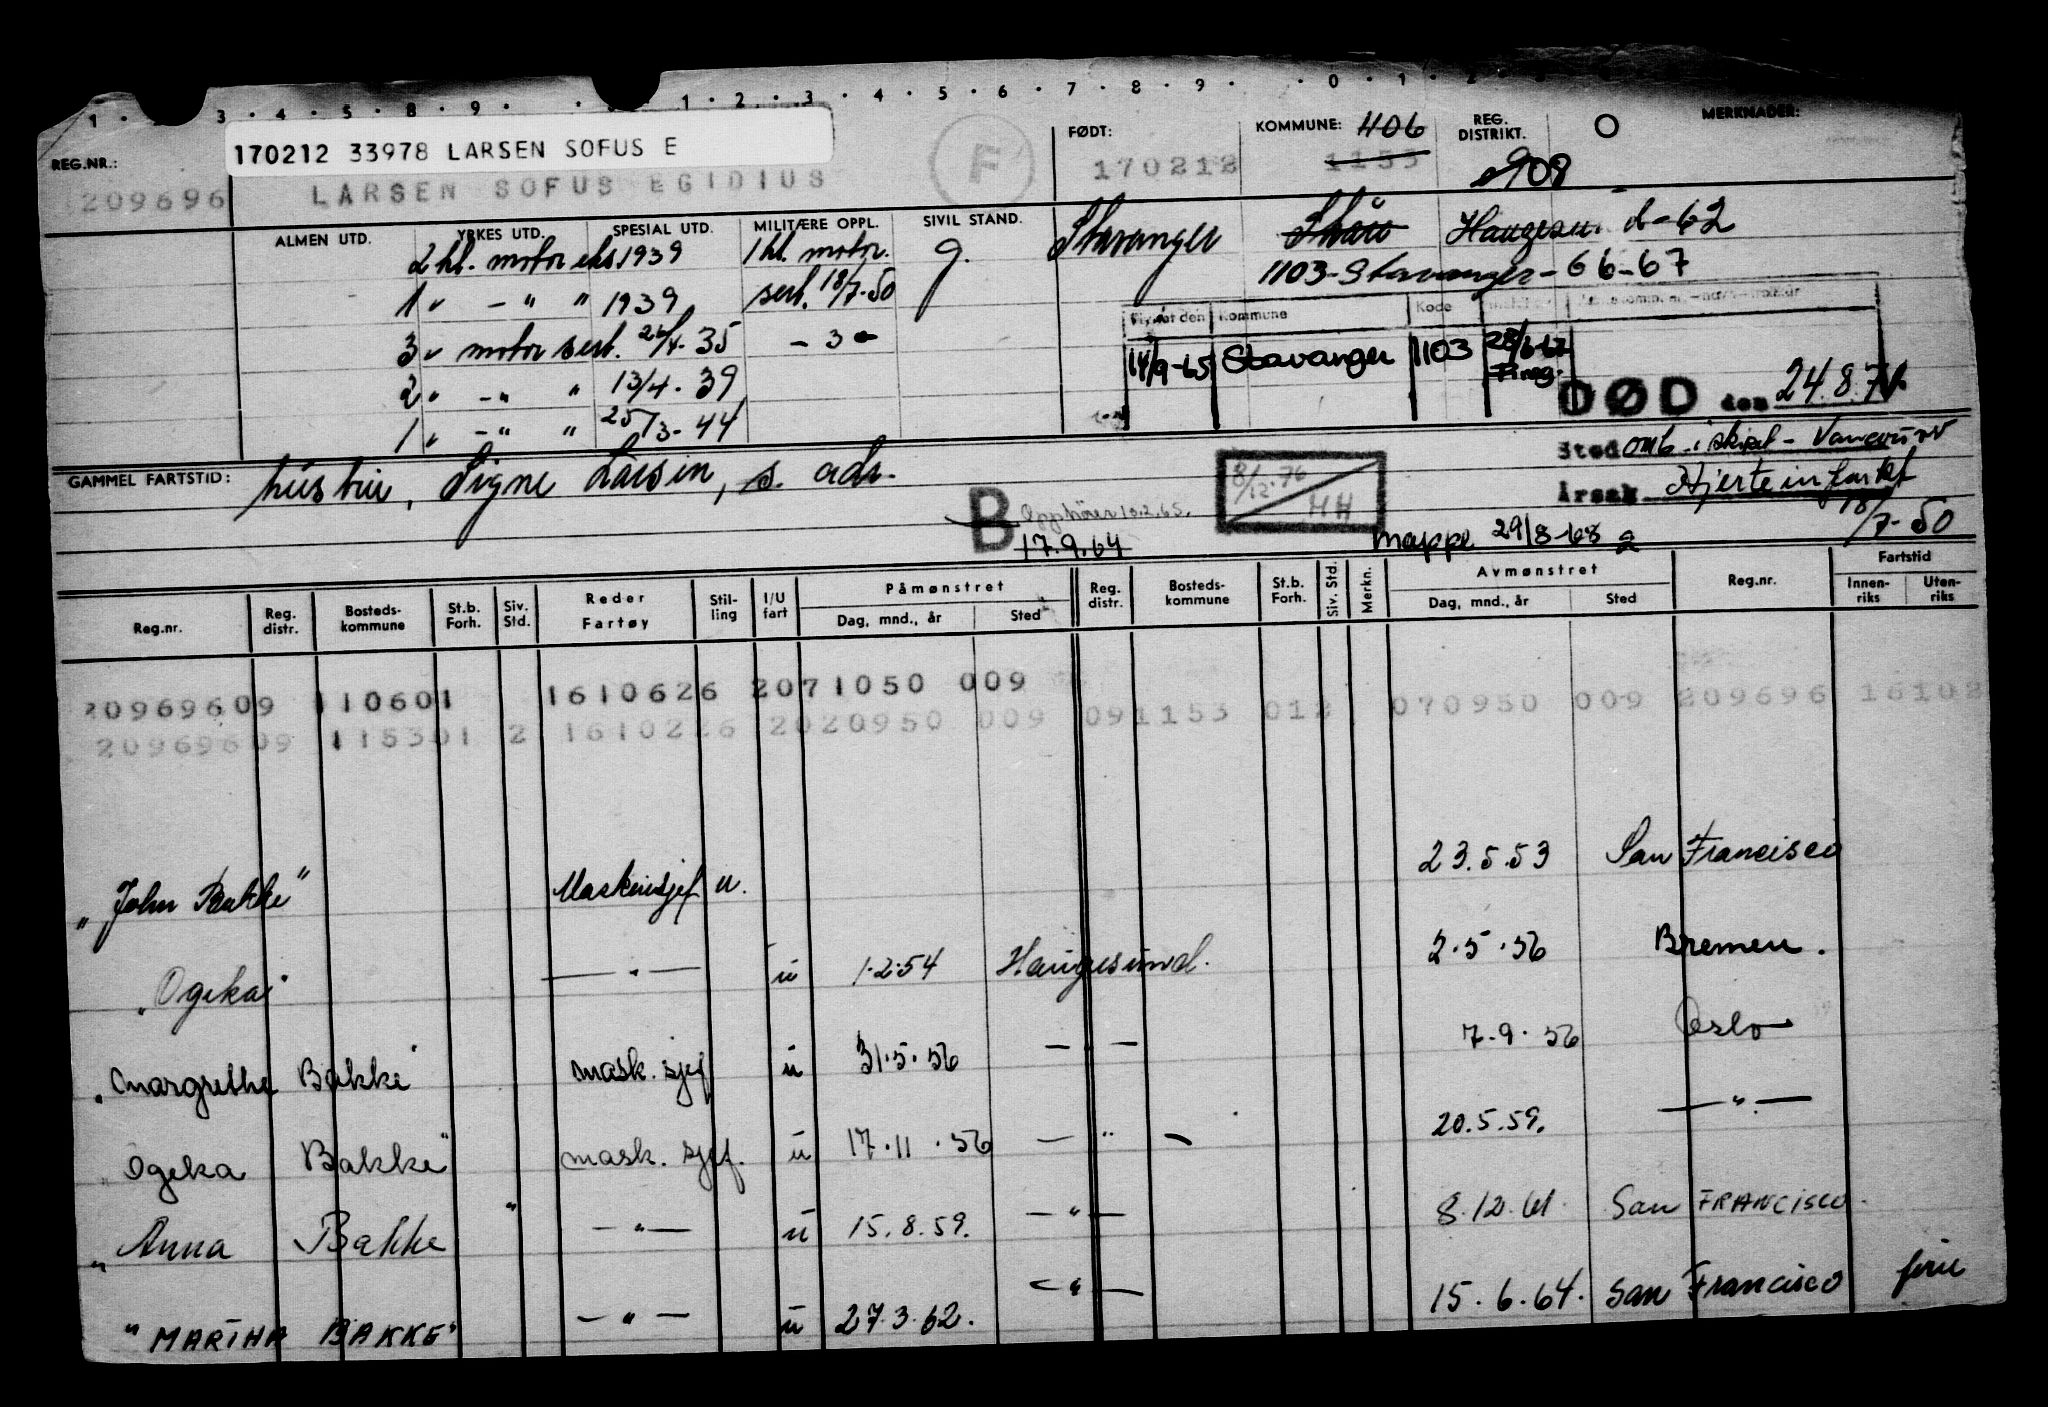 1 . 3 . 4 . 5 . 8 . 9 . . 1 . 2 . 3 . 4 . 5 . 6 . 7 . 8 . 9 . . 0 . 1 . 2
REG.NR.: 170212 33978 LARSEN SOFUS E FØDT: KOMMUNE: 1106 REG. DISTRIKT. O MERKNADER:
209696 LARSEN SOFUS EGIDIUS F 170212 1153 908
ALMEN UTD. YRKES UTD. SPESIAL UTD. MILITÆRE OPPL. SIVIL STAND. Stavanger Skåre Haugesund d-62
2 kl. motor eks 1939 1 kl. motor. g.
1 " - " " 1939 sert. 18/7-50 1103-Stavanger-66-67
Flyttet den Kommune Kode
3 " motor sert. 26/4-35 - 3 -
14/9-65 Stavanger 1103 28/6-67 F.reg.
2 " - " " 13/4-39 DØD den 24.8.71
1 " - " " 25/3-44
GAMMEL FARTSTID: hustru, Signe Larsen, s. adr. Sted omb. i skipet - Vancouver
8/12.76 HH Årsak Hjerteinfarkt
B Opphører 10.2.65. 18/7-50
17.9.64 mappe 29/8-68
Reg.nr. Reg. distr. Bosteds- kommune St.b. Forh. Siv. Std. Reder Fartøy Stil- ling I/U fart Påmønstret Dag, mnd., år Sted Reg. distr. Bosteds- kommune St.b. Forh. Siv. Std. Merkn. Avmønstret Dag, mnd., år Sted Reg.nr. Fartstid Innen- riks Uten- riks
20969609 110601 1610626 2071050 009
20969609 115301 2 1610226 2020950 009 091153 012 070950 009 209696 16102
"John Bakke" Maskinsjef u. 23.5.53 San Francisco
"Ogeka" - " - u 1.2.54 Haugesund. 2.5.56 Bremen.
"Margrethe Bakke" mask. sjef u 31.5.56 - " - 7.9.56 Oslo
"Ogeka Bakke" mask. sjef. u 17.11.56 - " - 20.5.59. - " -
"Anna Bakke" - " - u 15.8.59. - " - 8.12.61. San FRANCISCO.
"MARTHA BAKKE" - " - u 27.3.62. - " - 15.6.64. San Francisco ferie